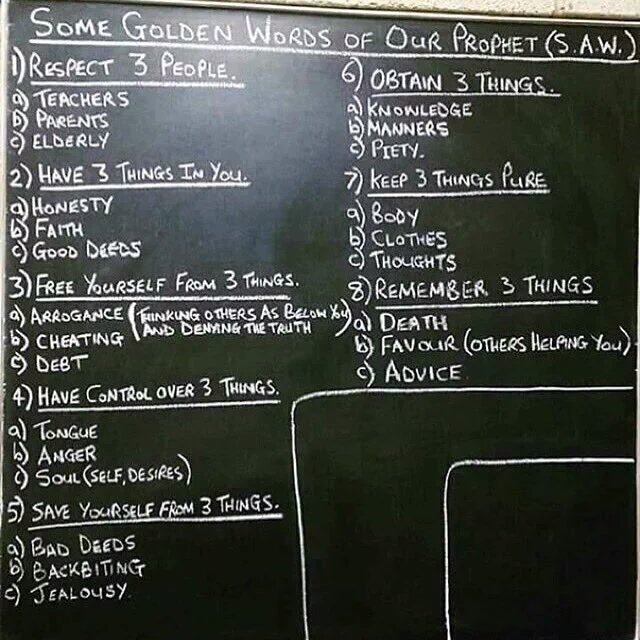 SOME GOLDEN WORDS OF OUR PROPHET (S.A.W.)
1) RESPECT 3 PEOPLE.
a) TEACHERS
b) PARENTS
c) ELDERLY
2) HAVE 3 THINGS IN YOU.
a) HONESTY
b) FAITH
c) GOOD DEEDS
3) FREE YOURSELF FROM 3 THINGS.
a) ARROGANCE (THINKING OTHERS AS BELOW YOU
AND DENYING THE TRUTH)
b) CHEATING
c) DEBT
4) HAVE CONTROL OVER 3 THINGS.
a) TONGUE
b) ANGER
c) SOUL (SELF, DESIRES)
5) SAVE YOURSELF FROM 3 THINGS.
a) BAD DEEDS
b) BACKBITING
c) JEALOUSY.
6) OBTAIN 3 THINGS.
a) KNOWLEDGE
b) MANNERS
c) PIETY.
7) KEEP 3 THINGS PURE
a) BODY
b) CLOTHES
c) THOUGHTS
8) REMEMBER 3 THINGS
a) DEATH
b) FAVOUR (OTHERS HELPING YOU)
c) ADVICE